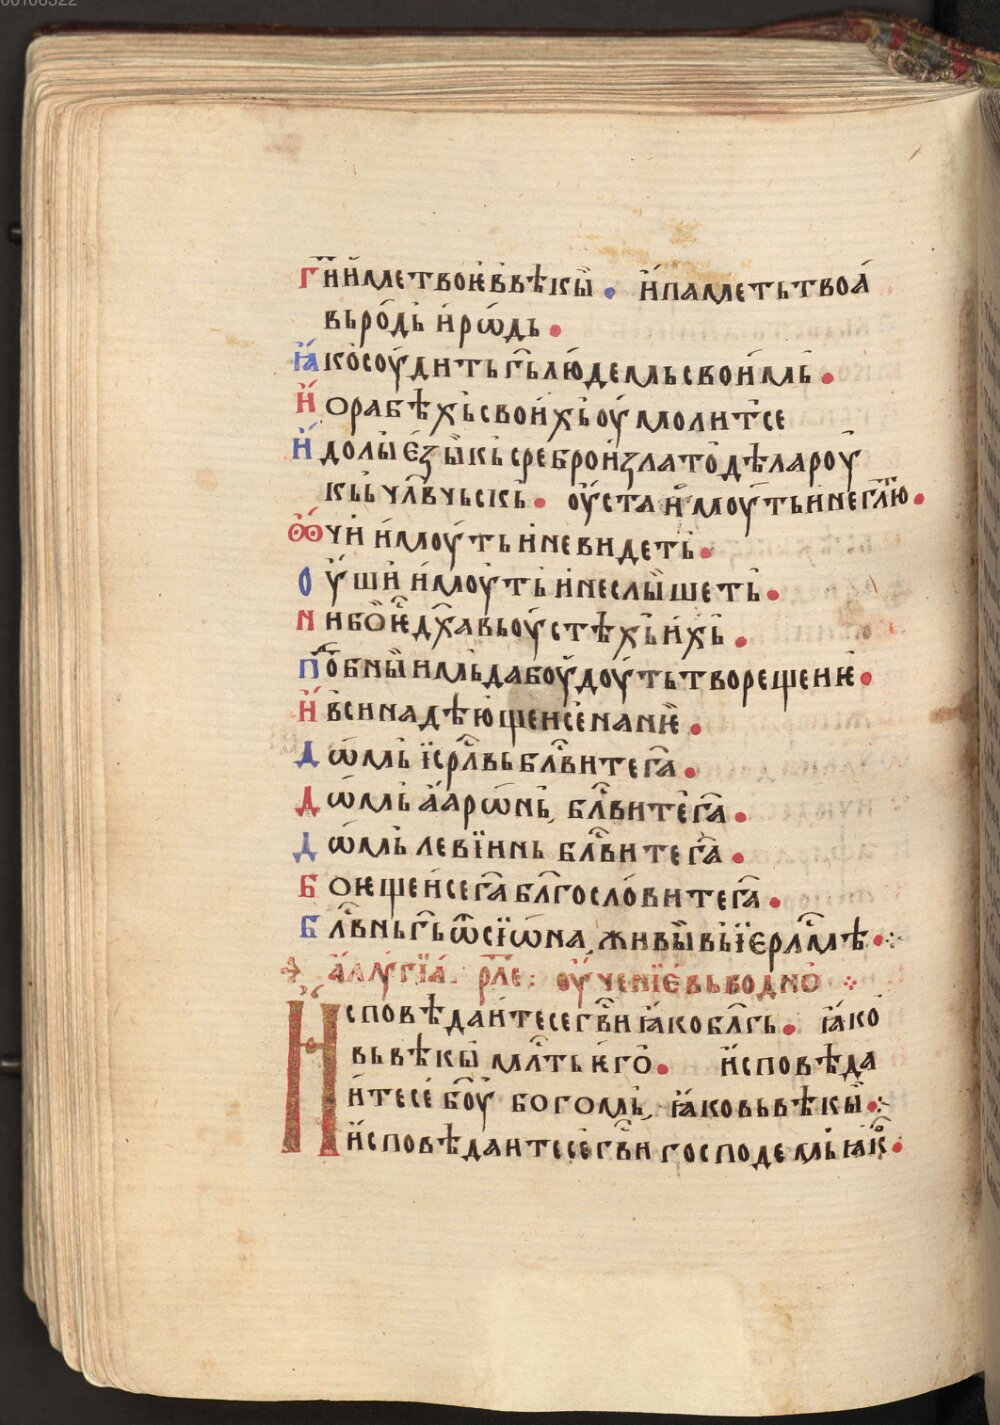 00106322
г҃и и́ме твоѥ в вѣкы̀ • и́ паметь твоꙗ́
вь ро́дь и҆ рѡ́дь •
ꙗ́ко соу́дить г҃ь лю́демь свои́мь •
И́ о рабѣхь свои́хь оу́молит се
И҆ доли е҆зы́кь сребро и҆ злато̀ дѣла роу́
кьь чл҃вчьскь • оу҆ста и҆моу́ть и не гл҃ю •
Ꙫчи и҆моу́ть и не видеть •
Оу́ши и҆моу́ть и не слы́шеть •
Ни бо ѥ҆ дх҃а вь оу҆стѣхь и҆хь •
По҆бны имь да боу́доу́ть творещеи ѥ •
И҆ вси надѣю́щеи се на нѥ̀ •
Дѡ́мь і҆ср҃лвь бл҃вите г҃а •
Дѡ́мь а҆арѡ́нь, бл҃вите г҃а •
Дѡ́мь левїинь бл҃вите г҃а •
Боѥщеи се г҃а бл҃гослови́те г҃а •
Бл҃внь г҃ь ѿ сїѡ́на, живы̀ вь і҆єрл҃мѣ •:
а҆лугїа́. рл҃е: оу҆чениѥ́ вь водно̀ :
Исповѣдаи́те се г҃ви ꙗ҆ко бл҃гь • ꙗ́ко
вь вѣкы̀ мл҃ть ѥ҆го̀ • и҆сповѣда
и҆те се́ б҃оу́ богомь, ꙗ҆ко вь вѣкы̀ •:
и҆сповѣдаите се́ г҃ви господемь ꙗ҆к •